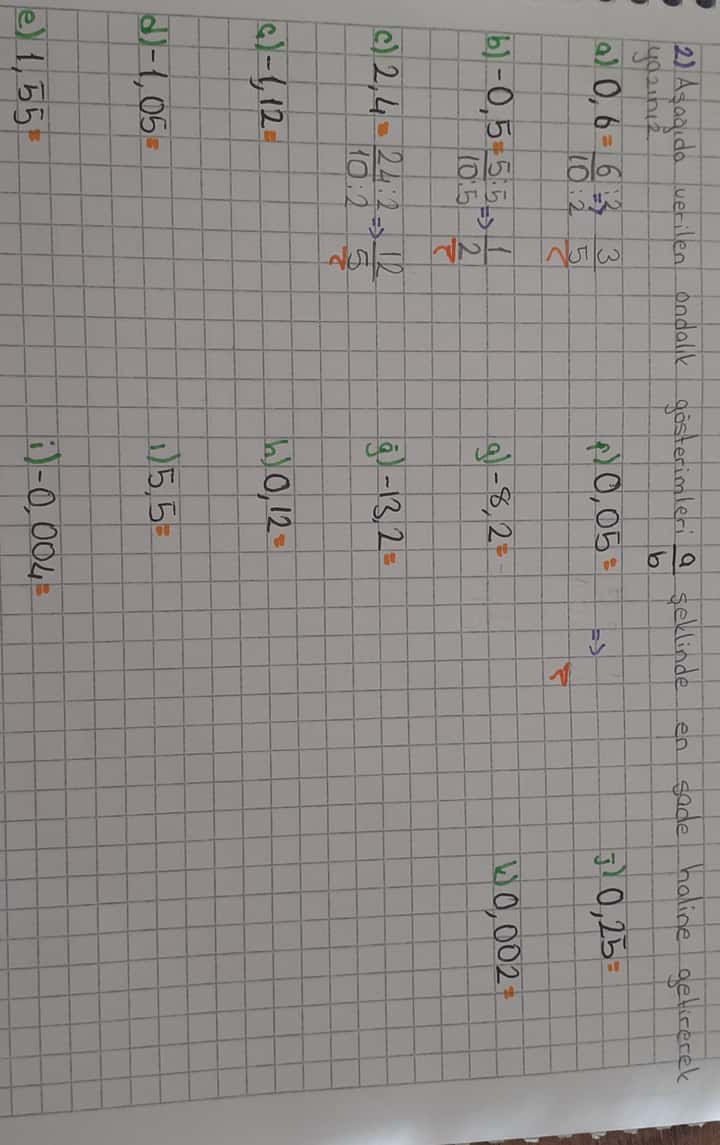 2) Aşağıda verilen ondalık gösterimleri a/b şeklinde en sade haline getirerek
yazınız
a) 0,6 = 6:2/10:2 => 3/5
b) -0,5 = 5:5/10:5 => 1/2
c) 2,4 = 24:2/10:2 => 12/5
ç) -1,12 =
d) -1,05 =
e) 1,55 =
f) 0,05 = =>
g) -8,2 =
ğ) -13,2 =
h) 0,12 =
ı) 5,5 =
i) -0,004 =
j) 0,25 =
k) 0,002 =